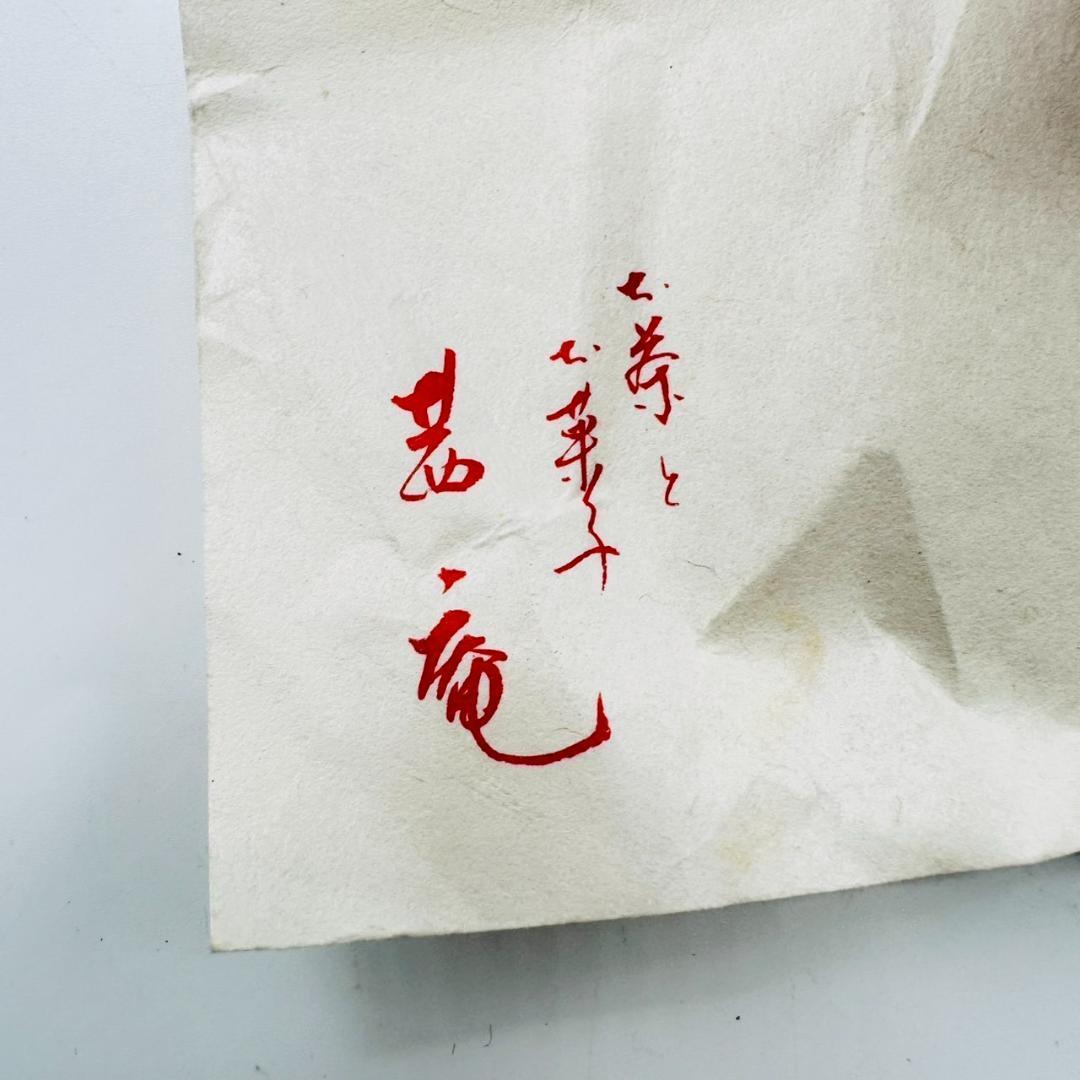 お茶と
お菓子
茜庵